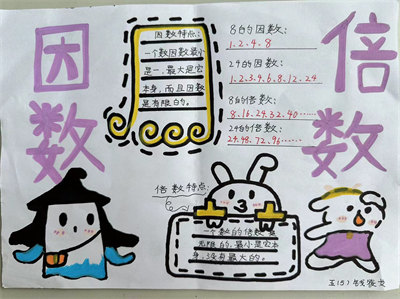 因数
倍数
因数特点:
一个数因数最小
是一,最大是它
本身,而且因数
是有限的。
8的因数:
1.2.4.8
24的因数:
1.2.3.4.6.8.12.24
8的倍数:
8.16.24.32.40……
24的倍数:
24.48.72.96……
倍数特点:
一个数的倍数是
无限的,最小是它本
身,没有最大的。
五(5)